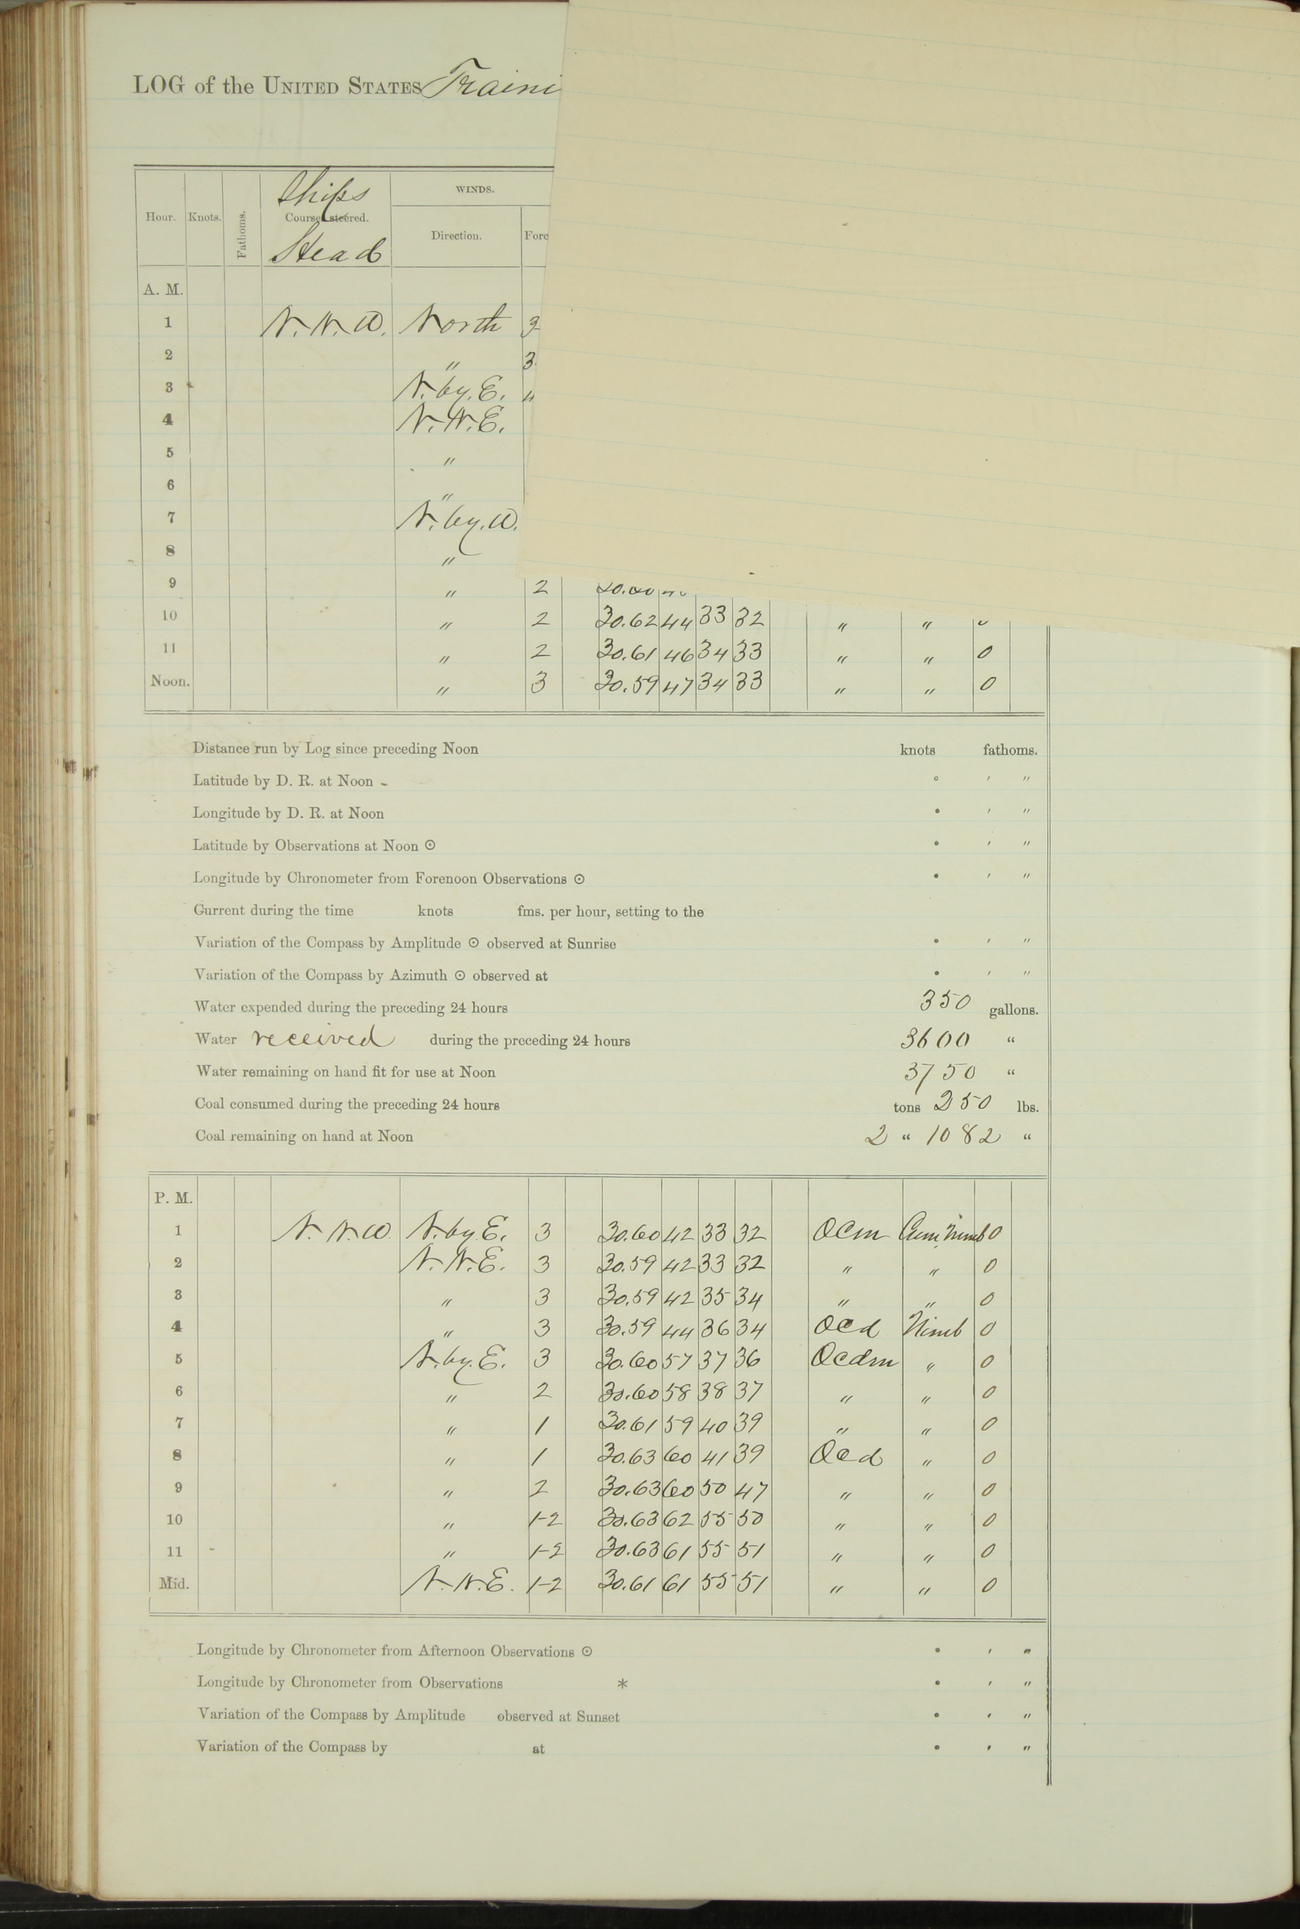 LOG of the UNITED STATES Traini
Ships
WINDS.
Hour. Knots. Fathoms. Courses steered. Direction. Forc
Head
A. M.
1 N. N. W. North 3
2 " 3
3 N. by. E. "
4 N. N. E.
5 "
6 "
7 N. by. W.
8 "
9 " 2
10 " 2 30.62 44 33 32 " "
11 " 2 30.61 46 34 33 " " 0
Noon. " 3 30.59 47 34 33 " " 0
Distance run by Log since preceding Noon knots fathoms.
Latitude by D. R. at Noon ° ′ ″
Longitude by D. R. at Noon ° ′ ″
Latitude by Observations at Noon ☉ ° ′ ″
Longitude by Chronometer from Forenoon Observations ☉ ° ′ ″
Current during the time knots fms. per hour, setting to the
Variation of the Compass by Amplitude ☉ observed at Sunrise ° ′ ″
Variation of the Compass by Azimuth ☉ observed at ° ′ ″
Water expended during the preceding 24 hours 350 gallons.
Water received during the preceding 24 hours 3600 "
Water remaining on hand fit for use at Noon 3750 "
Coal consumed during the preceding 24 hours tons 250 lbs.
Coal remaining on hand at Noon 2 " 1082 "
P. M.
1 N. N. W N. by E. 3 30.60 42 33 32 Ocm Cum. Nimb 0
2 N. N. E. 3 30.59 42 33 32 " " 0
3 " 3 30.59 42 35 34 " " 0
4 " 3 30.59 44 36 34 Ocd Nimb 0
5 N. by. E. 3 30.60 57 37 36 Ocdm " 0
6 " 2 30.60 58 38 37 " " 0
7 " 1 30.61 59 40 39 " " 0
8 " 1 30.63 60 41 39 Ocd " 0
9 " 2 30.63 60 50 47 " " 0
10 " 1-2 30.63 62 55 50 " " 0
11 " 1-2 30.63 61 55 51 " " 0
Mid. N. N. E. 1-2 30.61 61 55 51 " " 0
Longitude by Chronometer from Afternoon Observations ☉ ° ′ ″
Longitude by Chronometer from Observations * ° ′ ″
Variation of the Compass by Amplitude observed at Sunset ° ′ ″
Variation of the Compass by at ° ′ ″